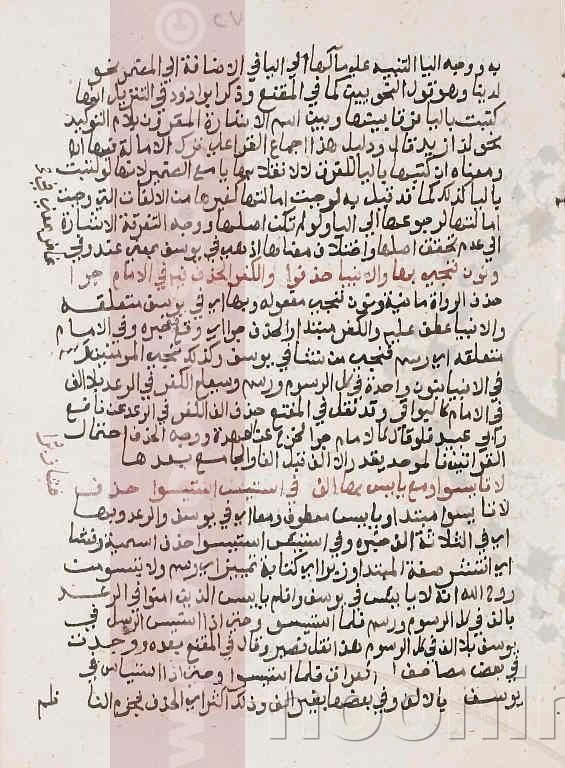 به ووجه اليا التنبيه على مآلها الي اليا في الاضافة الي المضمر نحو
لدينا وهو قول النحويين كما في المقنع وذكر ابو داود في التنزيل انها
كتبت باليا فرقا بينها وبين اسم الاشارة المقترن بلام التوكيد
نحو لذا زيد قال ودليل هذا اجماع القرا على ترك الامالة فيها اه
ومعناه ان كتبها باليا للفرق لا لانقلابها يا مع الضمير لانها لو كتبت
باليا لذلك كما قد قيل به لوجبت امالتها كغيرها من الالفات التي وجبت
امالتها لرجوعها الي اليا ولو لم تكن اصلها ووجه التفرقة الاشارة
الي عدم تحقق اصلها واختلاف معناها اذ هي في يوسف بمعنى عند وفي
ونون ننجي بها والانبيا حذفوا والكفر الحذف فيه في الامام جرا
حذف الرواة ماضية ونون ننجي مفعوله وبها اي في يوسف متعلقه
والانبيا عطف عليه والكفر مبتدا والحذف جرا اي وقع خبره وفي الامام
متعلقه اي رسم فنجي من نشا في يوسف وكذلك ننجي المومنين
في الانبيا بنون واحدة في كل الرسوم ورسم وسيعلم الكفر في الرعد بلا الف
في الامام كالبواقي وقد نقل في المقنع حذف الف الكفر في الرعد عن نافع
وابي عبيد فلو قال كالامام جرا لخرج عن عهدة ووجه الحذف احتمال
القراتين فالموحد يقدر الالف قبل الفا والجامع بعدها
لا تايسوا ومع يايس بها الف في استيس استيسوا حذف
لا تايسوا مبتدا ويايس معطوف ومعا اي في يوسف والرعد وبها
اي في الثلاثة الف خبره وفي استيئس استيسوا حذف اسمية وفشا
اي انتشر صفة المبتدا وزبرا اي كتابة تمييز اي رسم ولا تايسوا من
روح الله انه لا يايئس في يوسف وافلم يايئس الذين امنوا في الرعد
بالف في كل الرسوم ورسم فلما استيسوا وحتى اذا استيس الرسل في
يوسف بلا الف في كل الرسوم هذا نقل نصير وقال في المقنع بعده ووجدت
في بعض مصاحف العراق فلما استيسوا وحتى اذا استياس في
يوسف بالالف وفي بعضها بغير الف وذلك اكثر اي الحذف نجزم النا
فلم